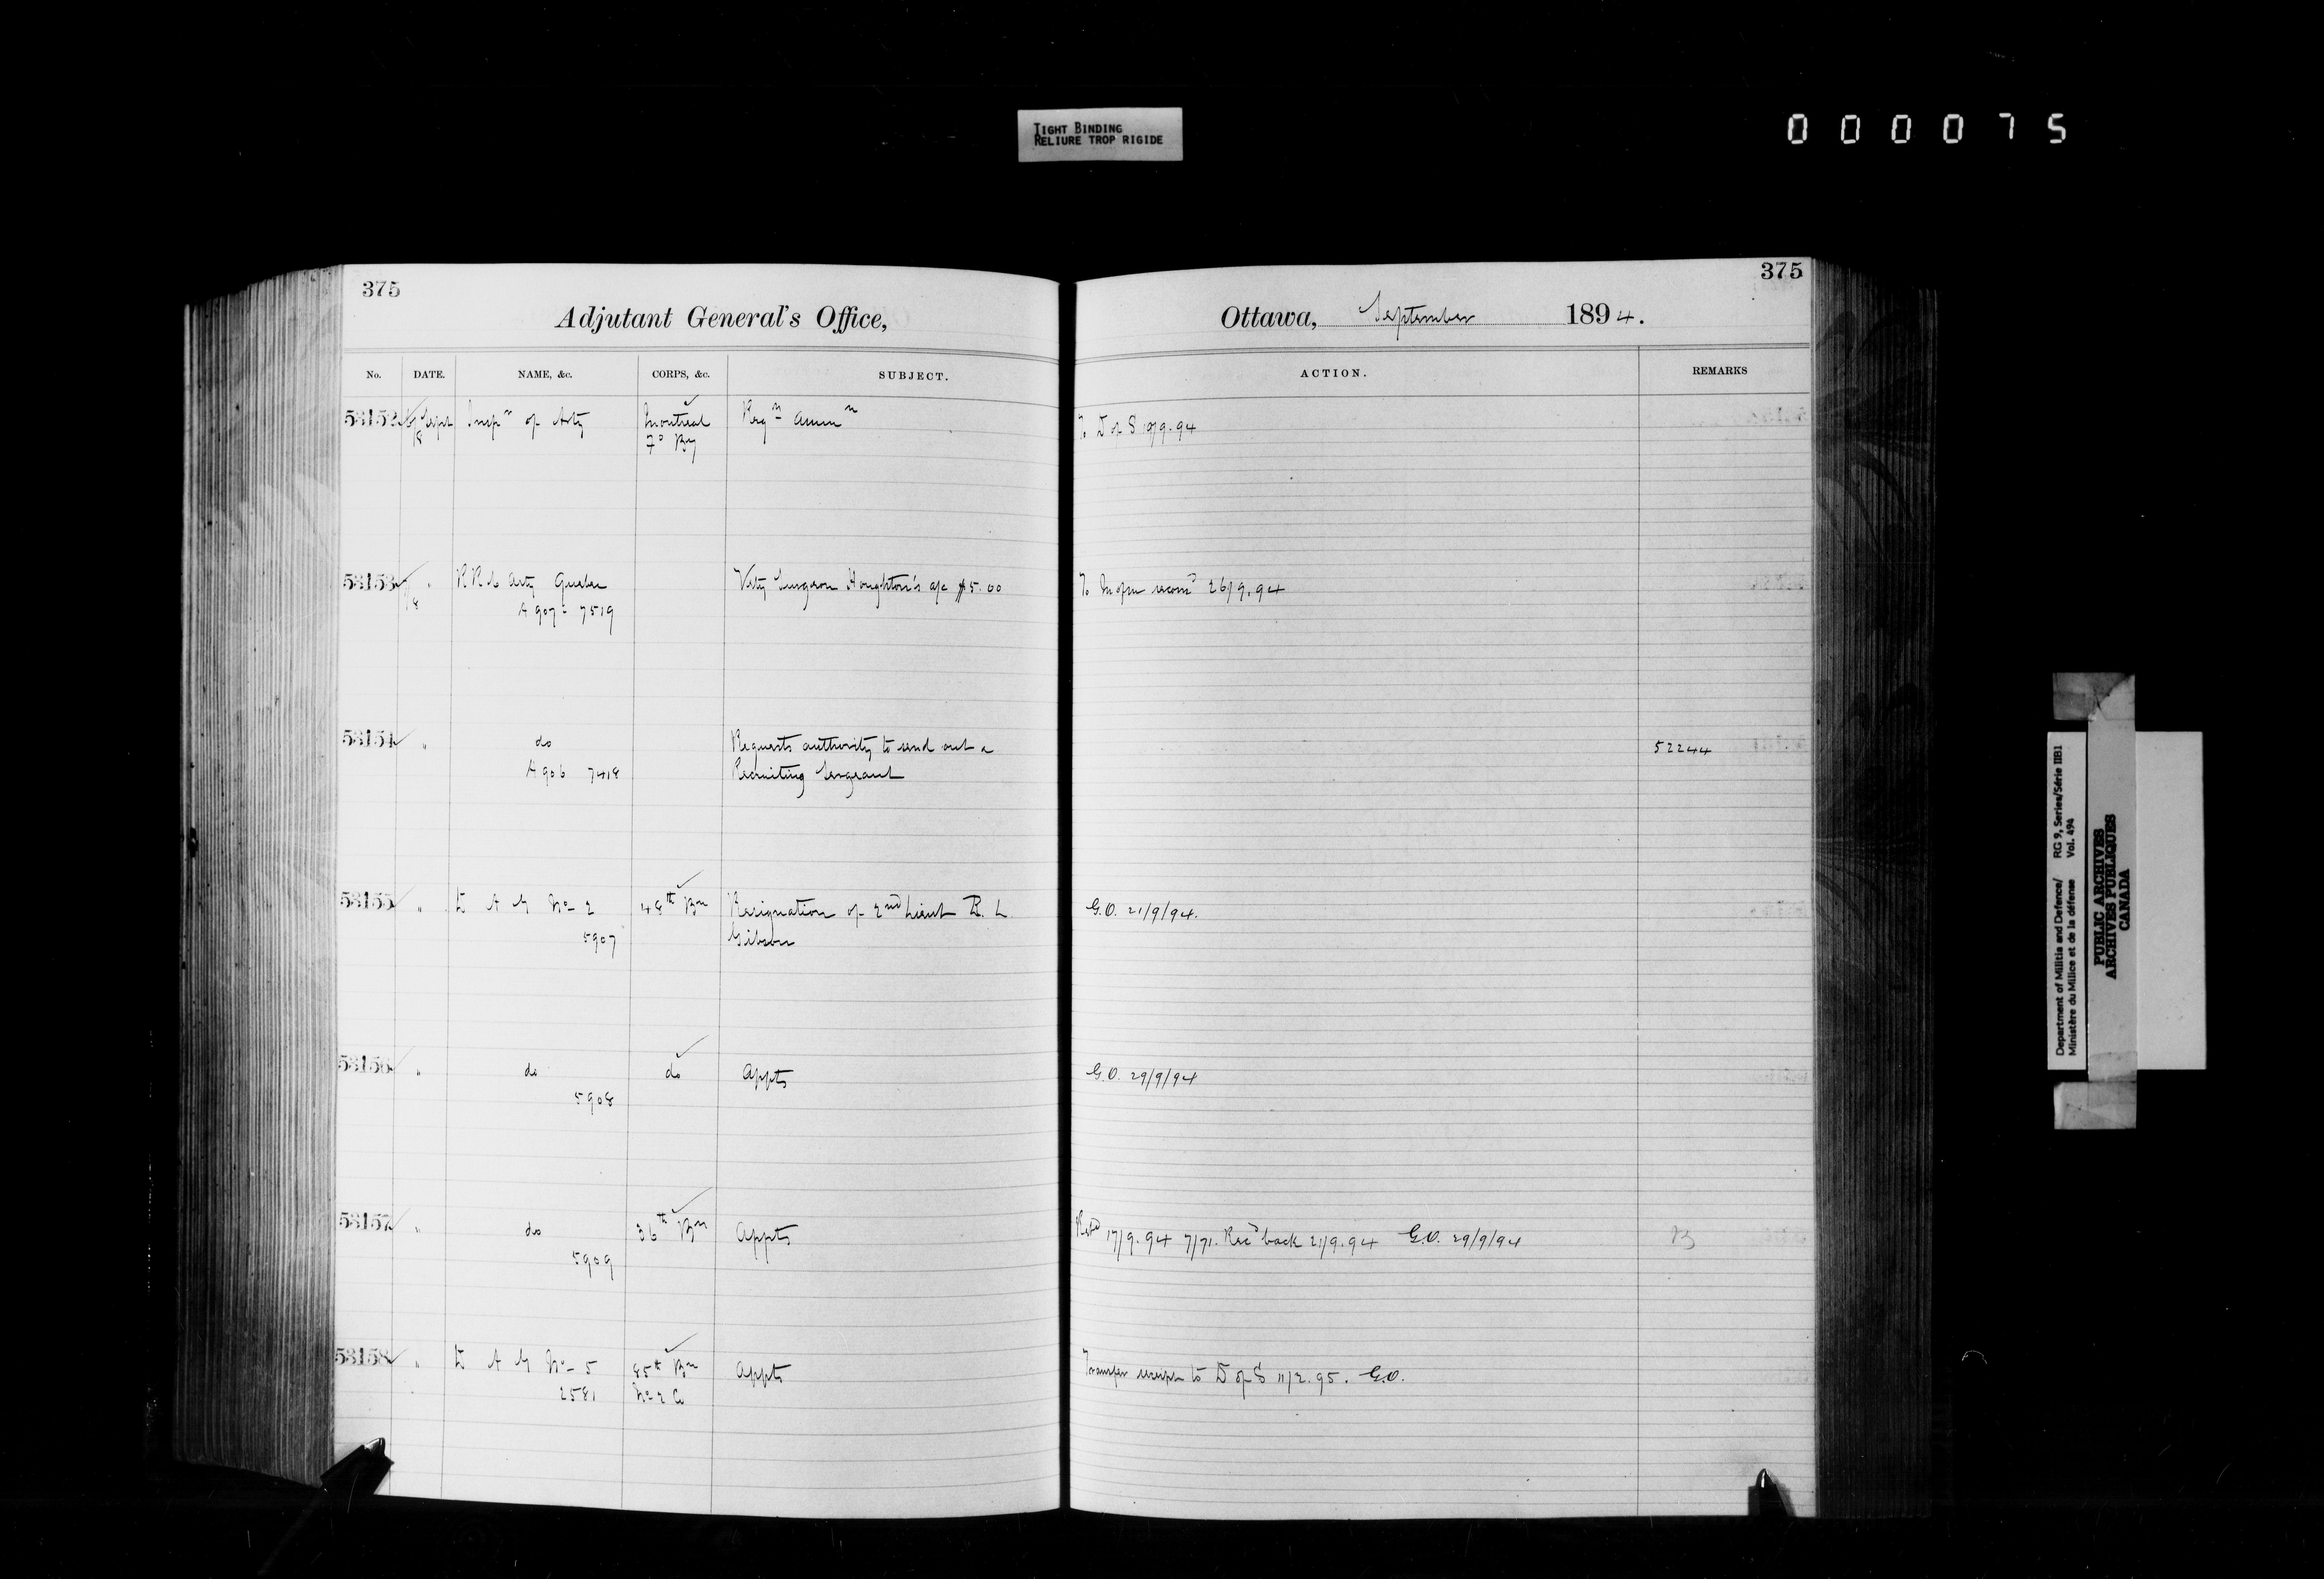 TIGHT BINDING
RELIURE TROP RIGIDE
000075
375
Adjutant General's Office,
No. DATE. NAME, &c. CORPS, &c. SUBJECT.
53152 Sept Inspr of Arty Montreal Reqn Ammn
18 Fd By
53153 " R R C Arty Quebec Vety Surgeon Houghton's a/c $5.00
18 A 907 - 7519
53154 " do Requests authority to send out a
A 906 7418 Recruiting Sergeant
53155 " D A G No 2 48th Bn Resignation of 2nd Lieut R. L.
5907 Gibson
53156 " do do Appts
5908
53157 " do 36th Bn Appts
5909
53158 " D A G No 5 85th Bn Appts
2581 No 2 Co
375
Ottawa, September 1894.
ACTION. REMARKS
To D of S 19/9.94
To 26/9.94
52244
G.O. 21/9/94.
G.O. 29/9/94
Retd 17/9.94 7/71. Recd back 21/9.94 G.O. 29/9/94 B
Transfer receipt to D of S 11/2.95. G.O.
Department of Militia and Defence/ RG 9, Series/Série IIB1
Ministère du Milice et de la défense Vol. 494
PUBLIC ARCHIVES
ARCHIVES PUBLIQUES
CANADA